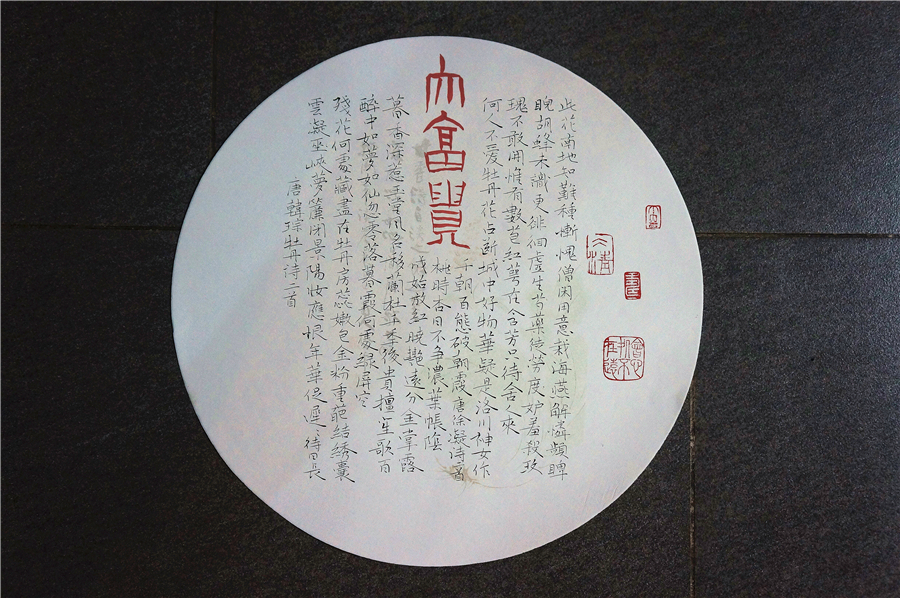 大富貴
此花南地知難種慚愧僧閑用意栽海燕解憐頻睥
睨胡蜂未識更徘徊虛生芍藥徒勞度妒羞殺玫
瑰不敢開惟有數苞紅萼在含芳只待舍人來
何人不愛牡丹花占斷城中好物華疑是洛川神女作
千朝百態破朝霞唐徐凝詩首
桃時杏日不爭濃葉帳陰
成始放紅曉艷遠分金掌露
暮香深惹玉堂風名移蘭杜千年後貴擅笙歌百
醉中如夢如仙忽零落暮霞何處綠屏空
殘花何處藏盡在牡丹房蕊嫩包金粉重葩結繡囊
雲凝巫峽夢簾閉景陽妝應恨年華促遲〻待日長
唐韓琮牡丹詩二首
會心不在遠